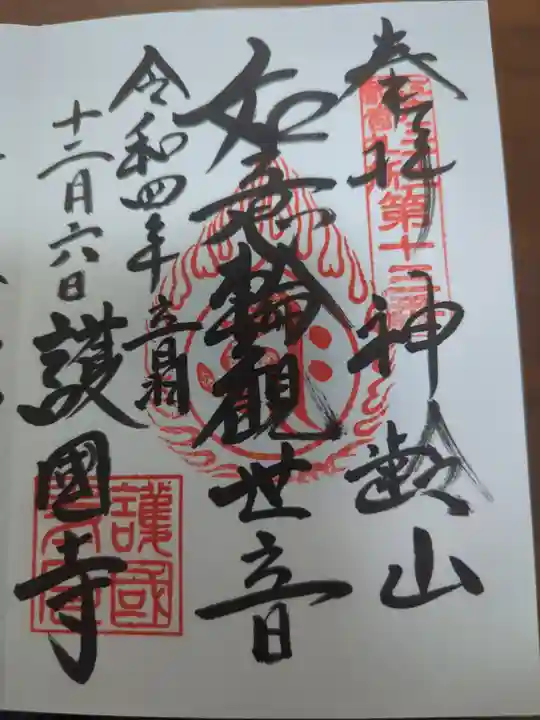 奉拝
第十三番
神齢山
如意輪觀世音
音羽
護國寺
令和四年
十二月六日
護國